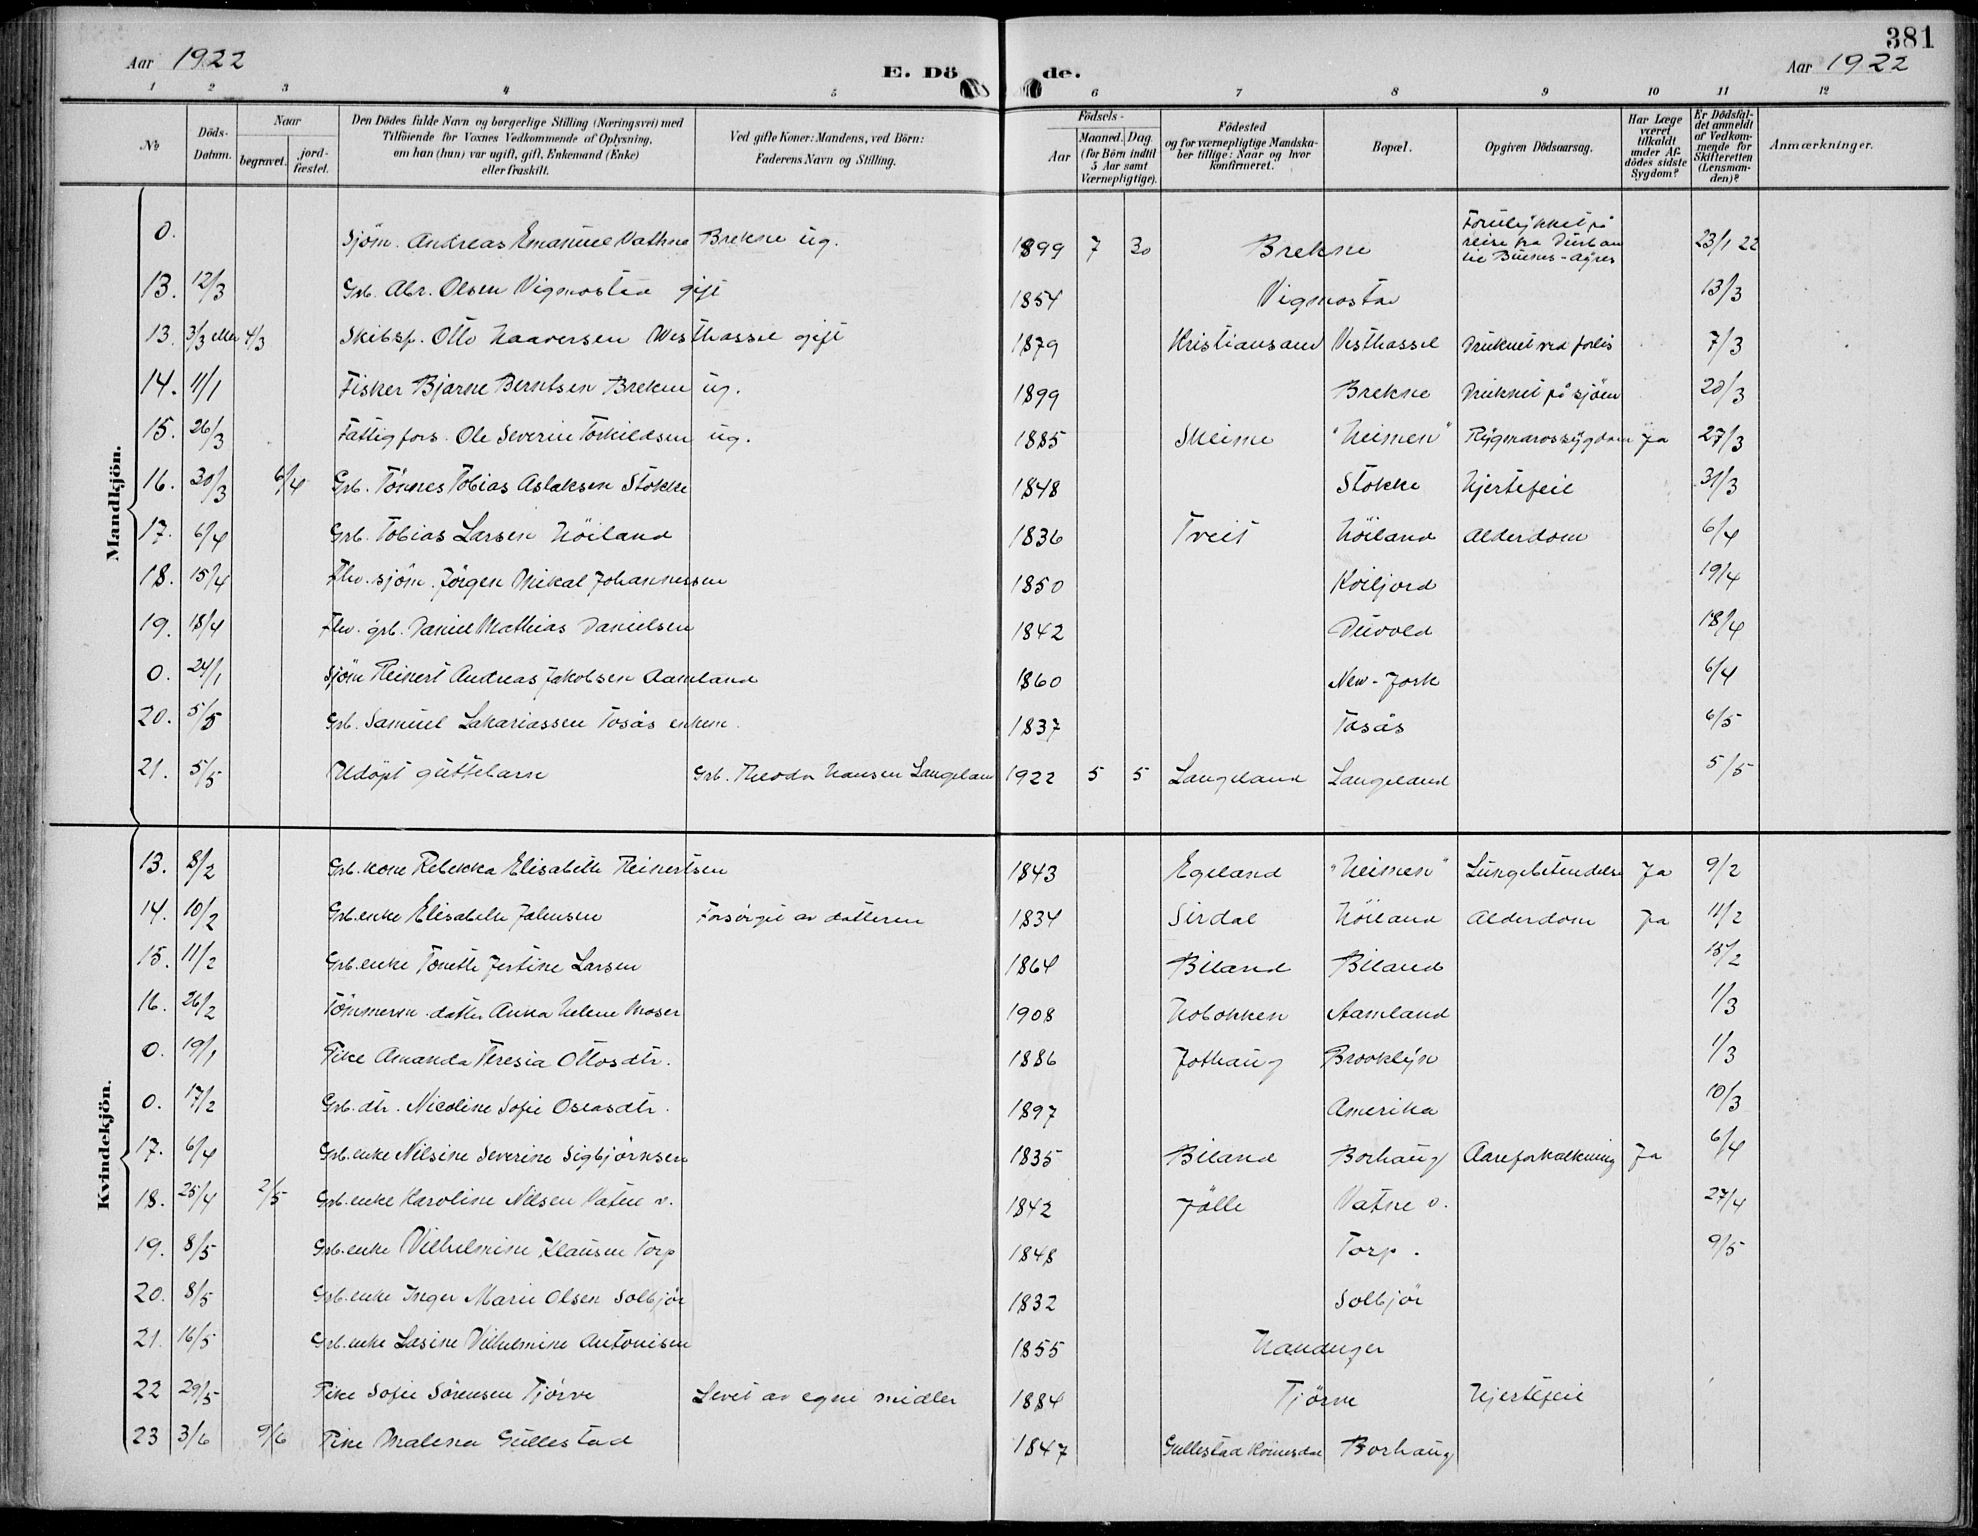 381
Aar 1922 E. Dö de. Aar 1922
1 2 3 4 5 6 7 8 9 10 11 12
No Döds-Datum. Naar begravet. jord-fæstet. Den Dödes fulde Navn og borgerlige Stilling (Næringsvei) med Tilföiende for Voxnes Vedkommende af Oplysning, om han (hun) var ugift, gift, Enkemand (Enke) eller fraskilt. Ved gifte Koner: Mandens, ved Börn: Faderens Navn og Stilling. Födsels- Aar Maaned. Dag. (for Börn indtil 5 Aar samt Værnepligtige). Födested og for værnepligtige Mandskaber tillige: Naar og hvor konfirmeret. Bopæl. Opgiven Dödsaarsag. Har Læge været tilkaldt under Afdödes sidste Sygdom? Er Dödsfaldet anmeldt af Vedkommende for Skifteretten (Lensmanden)? Anmærkninger.
Mandkjön.
0. Sjöm. Andreas Emanuel Vathne Brekne ug. 1899 7 30 Brekne Forulykket på reise fra Durban til Buenos-Ayres 23/1 22
13. 12/3 Grb. Abr. Olsen Vigmostad gift 1854 Vigmostad 13/3
13. 3/3 eller 4/3 Skibsf. Otto Haaversen Westhassel gift 1879 Kristiansand Vesthassel Druknet ved forlis 7/3
14. 11/1 Fisker Bjarne Berntsen Brekne ug. 1899 Brekne Druknet på sjöen 20/3
15. 26/3 Fattigfors. Ole Severin Torkildsen ug. 1885 Skeime "Heimen" Rygmarvssygdom Ja 27/3
16. 30/3 6/4 Grb. Tönnes Tobias Aslaksen Stokke 1848 Stokke Hjertefeil 31/3
17. 6/4 Grb. Tobias Larsen Höiland 1836 Tveit Höiland Alderdom 6/4
18. 15/4 Fhv. sjöm. Jörgen Mikal Johannessen 1850 Kviljord 19/4
19. 18/4 Fhv. grb. Daniel Mathias Danielsen 1842 Duvold 18/4
0. 24/1 Sjöm Reinert Andreas Jakobsen Aamland 1860 New-Jork 6/4
20. 5/5 Grb. Samuel Sakariassen Tosås enkem. 1837 Tosås 6/5
21. 5/5 Udöpt guttebarn Grb. Theodor Hansen Langeland 1922 5 5 Langeland Langeland 5/5
Kvindekjön.
13. 8/2 Grb. kone Rebekka Elisabeth Reinertsen 1843 Egeland "Heimen" Lungebetendelse Ja 9/2
14. 10/2 Grb. enke Elisabeth Jahnsen Forsörget av datteren 1834 Sirdal Höiland Alderdom Ja 11/2
15. 11/2 Grb. enke Tonette Jestine Larsen 1864 Biland Biland 15/2
16. 26/2 Tömmerm. datter Anna Helene Moser 1908 Hobokken Aamland 1/3
0. 19/1 Pike Amanda Teresia Ottosdtr. 1886 Jothaug Brooklyn 1/3
0. 17/2 Grb. dtr. Nicoline Sofie Oseasdtr. 1897 Amerika 10/3
17. 6/4 Grb. enke Nilsine Severine Sigbjörnsen 1835 Biland Borhaug Aareforkalkning Ja 6/4
18. 25/4 2/5 Grb. enke Karoline Nilsen Vatne v. 1842 Jölle Vatne v. 27/4
19. 8/5 Grb. enke Vilhelmine Klausen Torp 1848 Torp. 9/5
20. 8/5 Grb. enke Inger Marie Olsen Solbjör 1832 Solbjör
21. 16/5 Grb. enke Lasine Vilhelmine Antonisen 1855 Hananger
22 29/5 Pike Sofie Sörensen Tjörve Levet av egne midler 1884 Tjörve Hjertefeil
23 3/6 9/6 Pike Malena Gullestad 1847 Gullestad Kvinesdal Borhaug